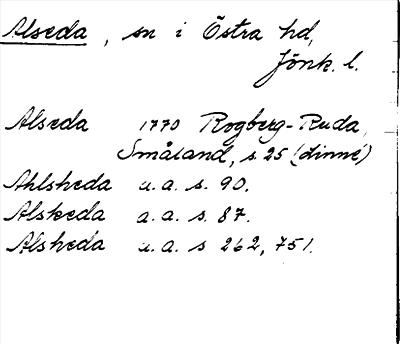 Alseda, sn i Östra hd,
Jönk. l.
Alseda 1770 Rogberg-Ruda,
Småland, s. 25 (dinné)
Ahlsheda a.a. s. 90.
Alskeda a.a. s. 87.
Alsheda a.a. s 262, 751.